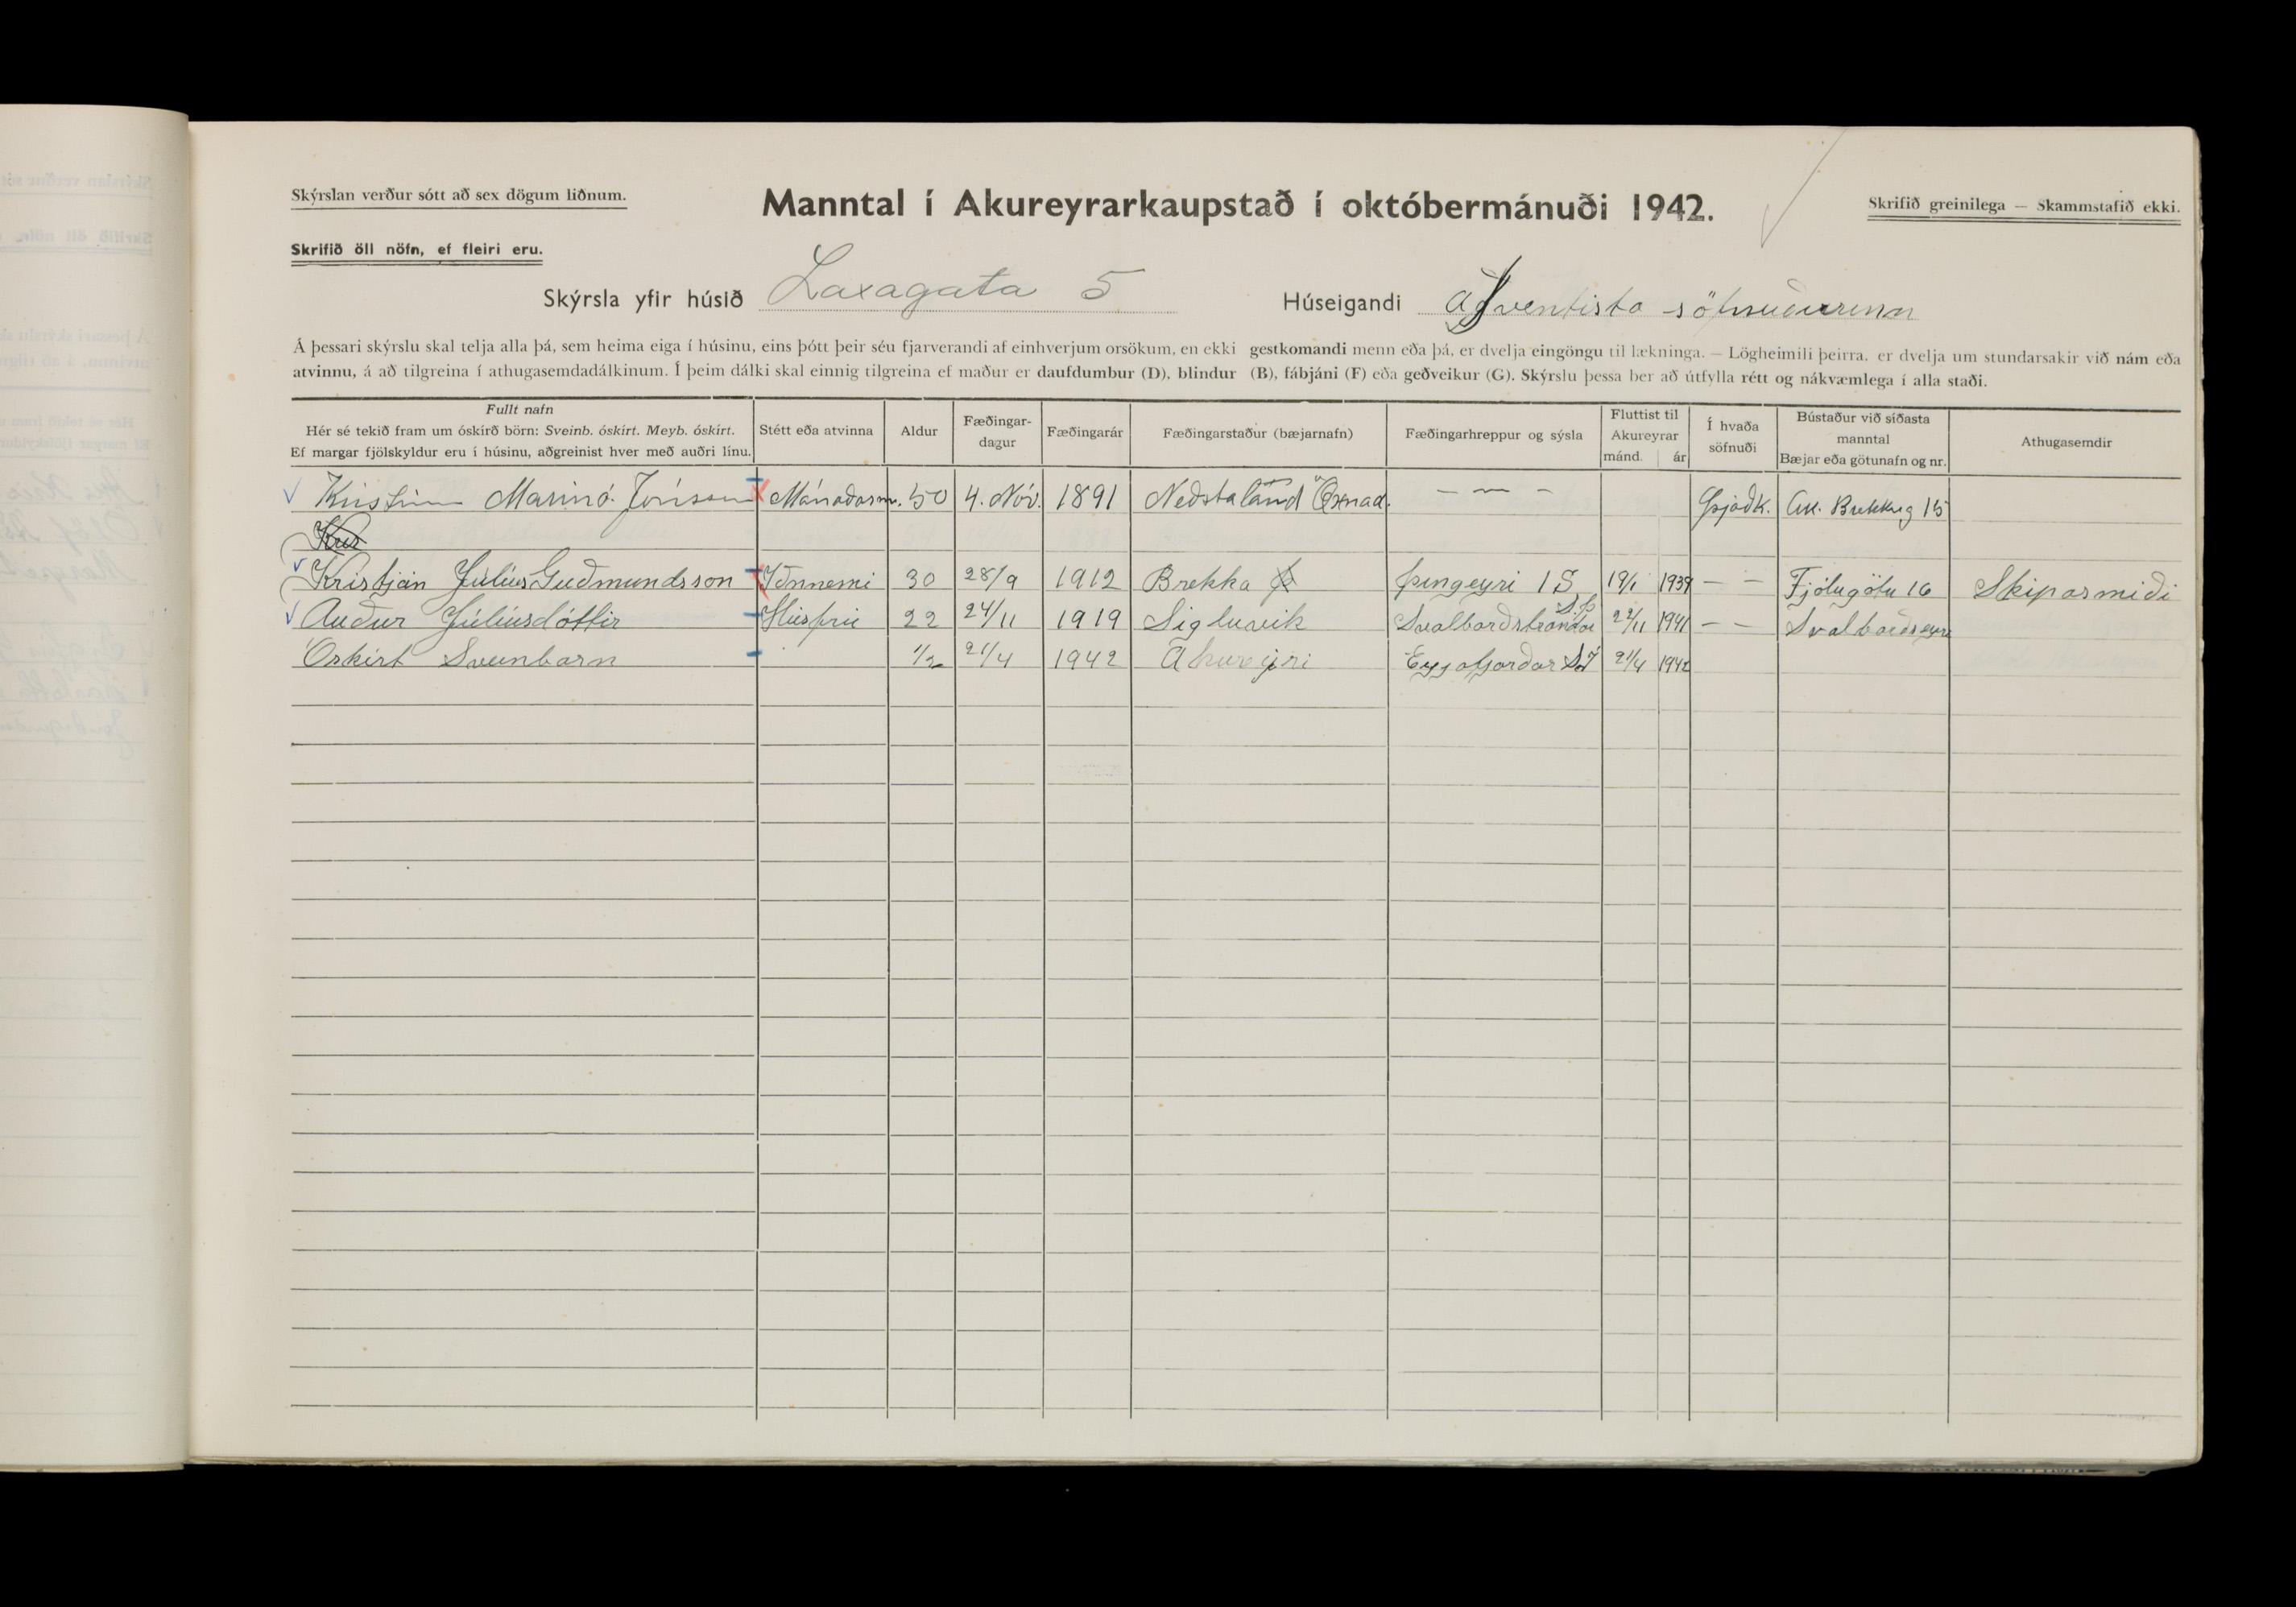 Skýrslan verður sótt að sex dögum liðnum.
Manntal í Akureyrarkaupstað í októbermánuði 1942.
Skrifið greinilega — Skammstafið ekki.
Skrifið öll nöfn, ef fleiri eru.
Skýrsla yfir húsið Laxagata 5 Húseigandi Aðventista söfnuðurinn
Á þessari skýrslu skal telja alla þá, sem heima eiga í húsinu, eins þótt þeir séu fjarverandi af einhverjum orsökum, en ekki gestkomandi menn eða þá, er dvelja eingöngu til lækninga. — Lögheimili þeirra, er dvelja um stundarsakir við nám eða
atvinnu, á að tilgreina í athugasemdadálkinum. Í þeim dálki skal einnig tilgreina ef maður er daufdumbur (D), blindur (B), fábjáni (F) eða geðveikur (G). Skýrslu þessa ber að útfylla rétt og nákvæmlega í alla staði.
Fullt nafn
Hér sé tekið fram um óskírð börn: Sveinb. óskírt. Meyb. óskírt.
Ef margar fjölskyldur eru í húsinu, aðgreinist hver með auðri línu.
Stétt eða atvinna
Aldur
Fæðingar-
dagur
Fæðingarár
Fæðingarstaður (bæjarnafn)
Fæðingarhreppur og sýsla
Fluttist til
Akureyrar
mánd. ár
Í hvaða
söfnuði
Bústaður við síðasta
manntal
Bæjar eða götunafn og nr.
Athugasemdir
Kristinn Marinó Jónsson Mánaðarm. 50 4. Nóv. 1891 Neðstaland Öxnad. — — — Þjóðk. Ak. Brekkug 15
Kris
Kristján Júlíus Guðmundsson Iðnnemi 30 28/9 1912 Brekka Þingeyri I S, 19/1 1939 — — Fjólugötu 16 Skipasmiði
Auður Júlíusdóttir Húsfrú 22 24/11 1919 Sigluvik Svalbarðstrandar S.Þ 22/11 1941 — — Svalbarðseyri
Óskírt Sveinbarn 1/2 21/4 1942 Akureyri Eyjafjarðar 21/4 1942